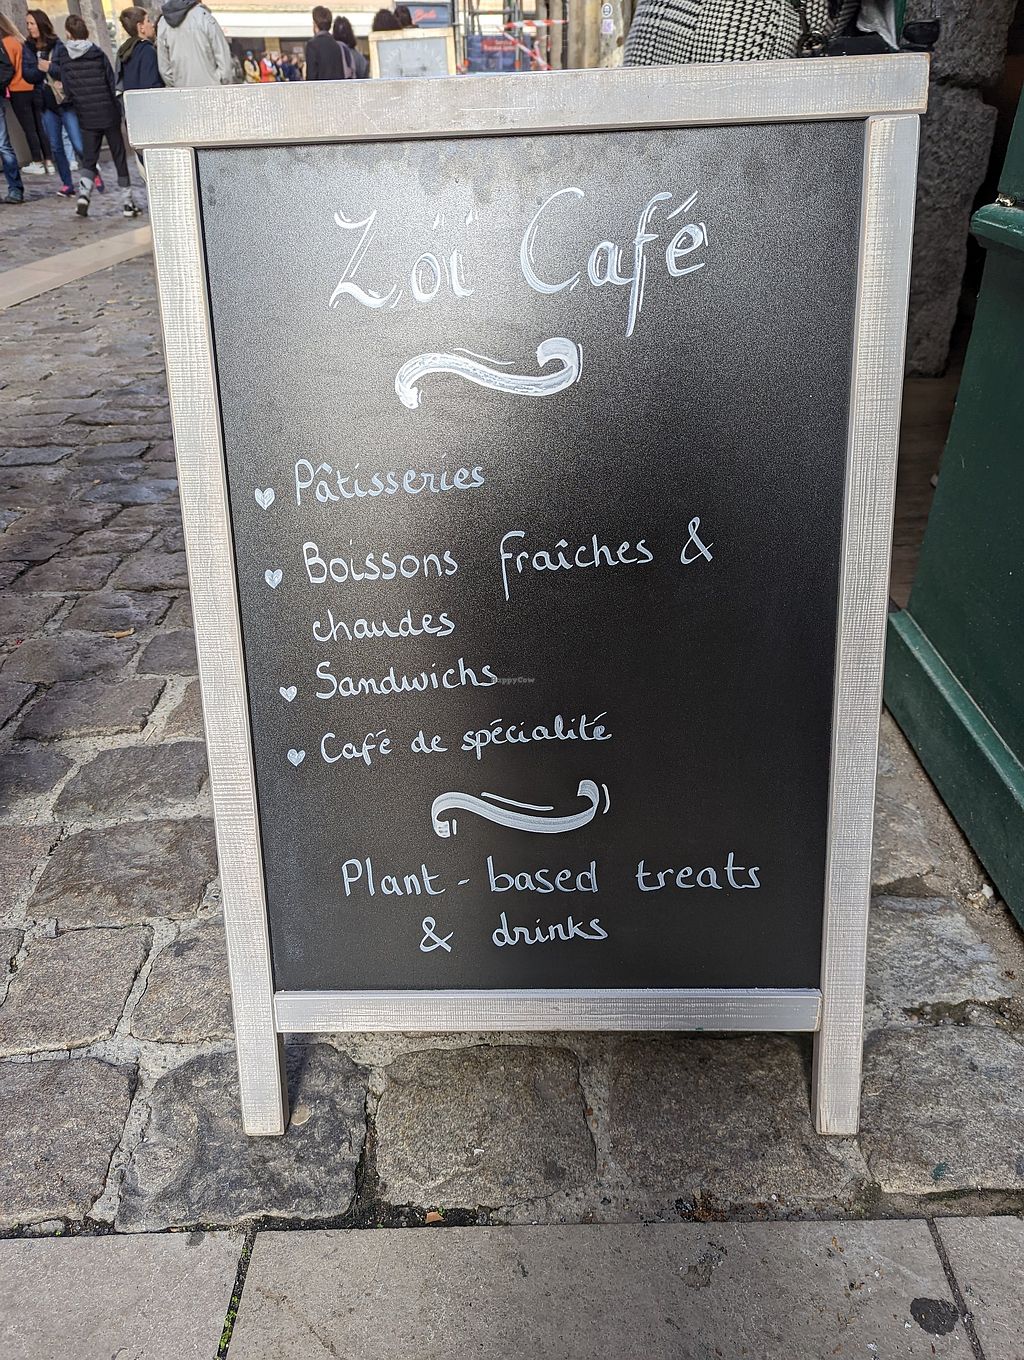 Zoï Café
Pâtisseries
Boissons fraîches &
chaudes
Sandwichs
Café de spécialité
Plant-based treats
& drinks